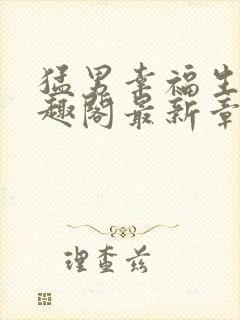 猛男幸福生
趣阁最新章
理查兹